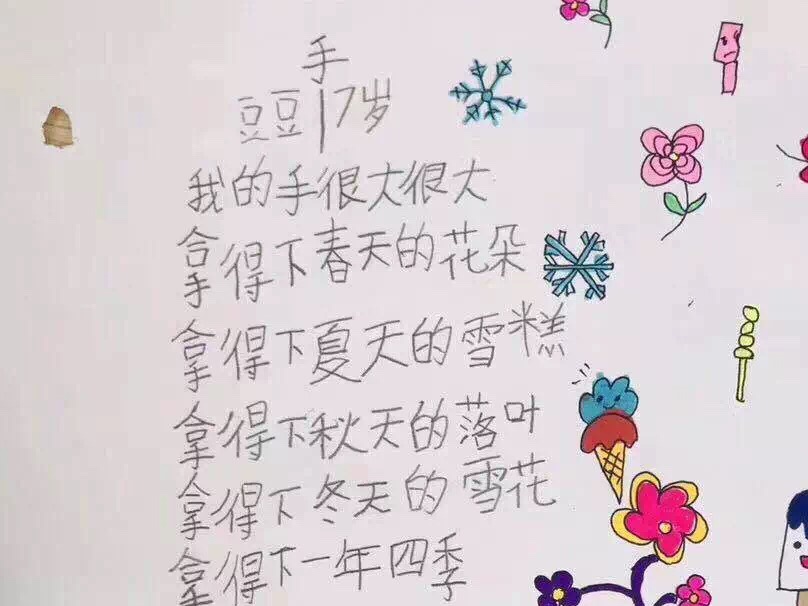 手
豆豆|7岁
我的手很大很大
拿得下春天的花朵
拿得下夏天的雪糕
拿得下秋天的落叶
拿得下冬天的雪花
拿得下一年四季